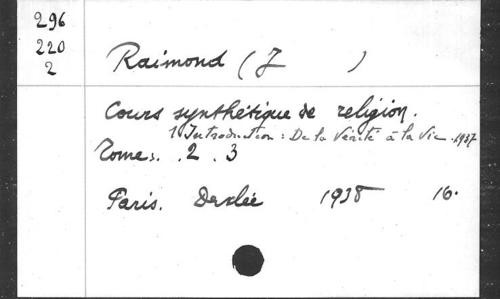 296
220
2
Raimond (J )
Cours synthétique de religion.
1 Introduction : De la Vérité à la Vie. 1937
Tomes. . 2 . 3
Paris. Desclée 1938 16.